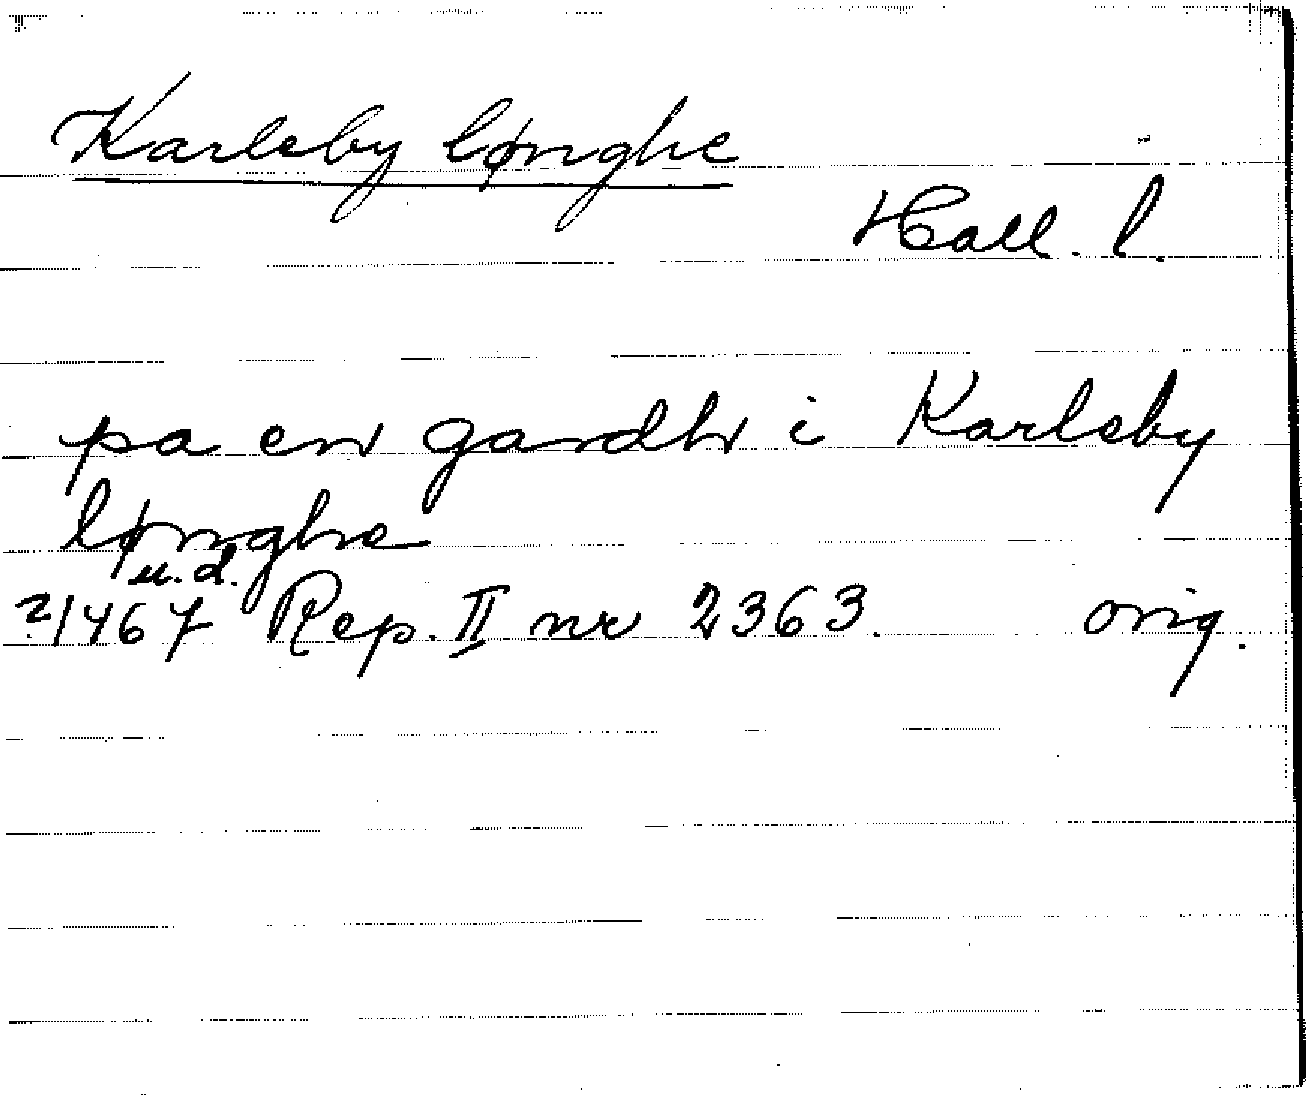 Karleby lønghe
Hall. l.
pa en gardh i Karleby
lønghe
u. d.
?1467 Rep. II nr 2363. orig.